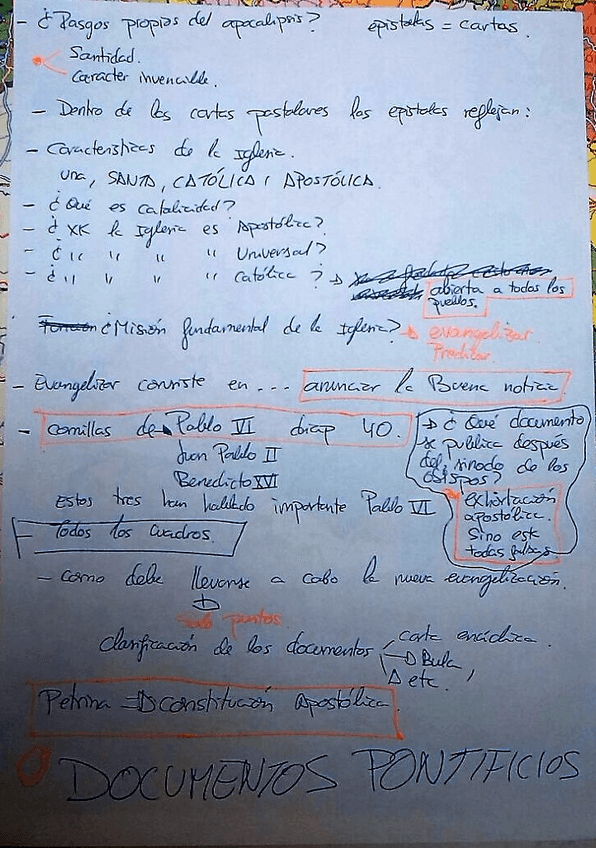 - ¿Rasgos propios del apocalipsis? epistolas = cartas.
Santidad.
Caracter invencible.
- Dentro de las cartas pastolares las epistolas reflejan:
- Características de la Iglesia.
una, SANTA, CATÓLICA Y APOSTÓLICA.
- ¿Qué es catolicidad?
- ¿XK la Iglesia es Apostólica?
- ¿ " " " " Universal?
- ¿ " " " " católica? →
abierta a todos los
pueblos.
¿Misión fundamental de la Iglesia? → evangelizar.
Predicar.
- Evangelizar consiste en ... anunciar la Buena noticia
- comillas de Pablo VI diap 40.
Juan Pablo II
Benedicto XVI
→ ¿Qué documento
se publica después
del sinodo de los
obispos?
exhortación
apostólica.
Sino est
todas falsas.
Estos tres han hablado importante Pablo VI
- Todos los cuadros.
- como debe llevarse a cabo la nueva evangelización.
puntos.
clasificación de los documentos carta encíclica.
→ Bula,
etc.
Petrina => constitución apostólica.
DOCUMENTOS PONTIFICIOS